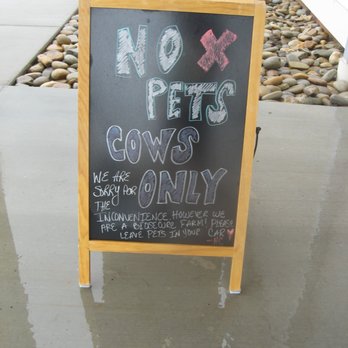 NO X
PETS
COWS
ONLY
WE ARE
SORRY FOR
THE
INCONVENIENCE HOWEVER WE
ARE A BIOSECURE FARM! PLEASE
LEAVE PETS IN YOUR CAR